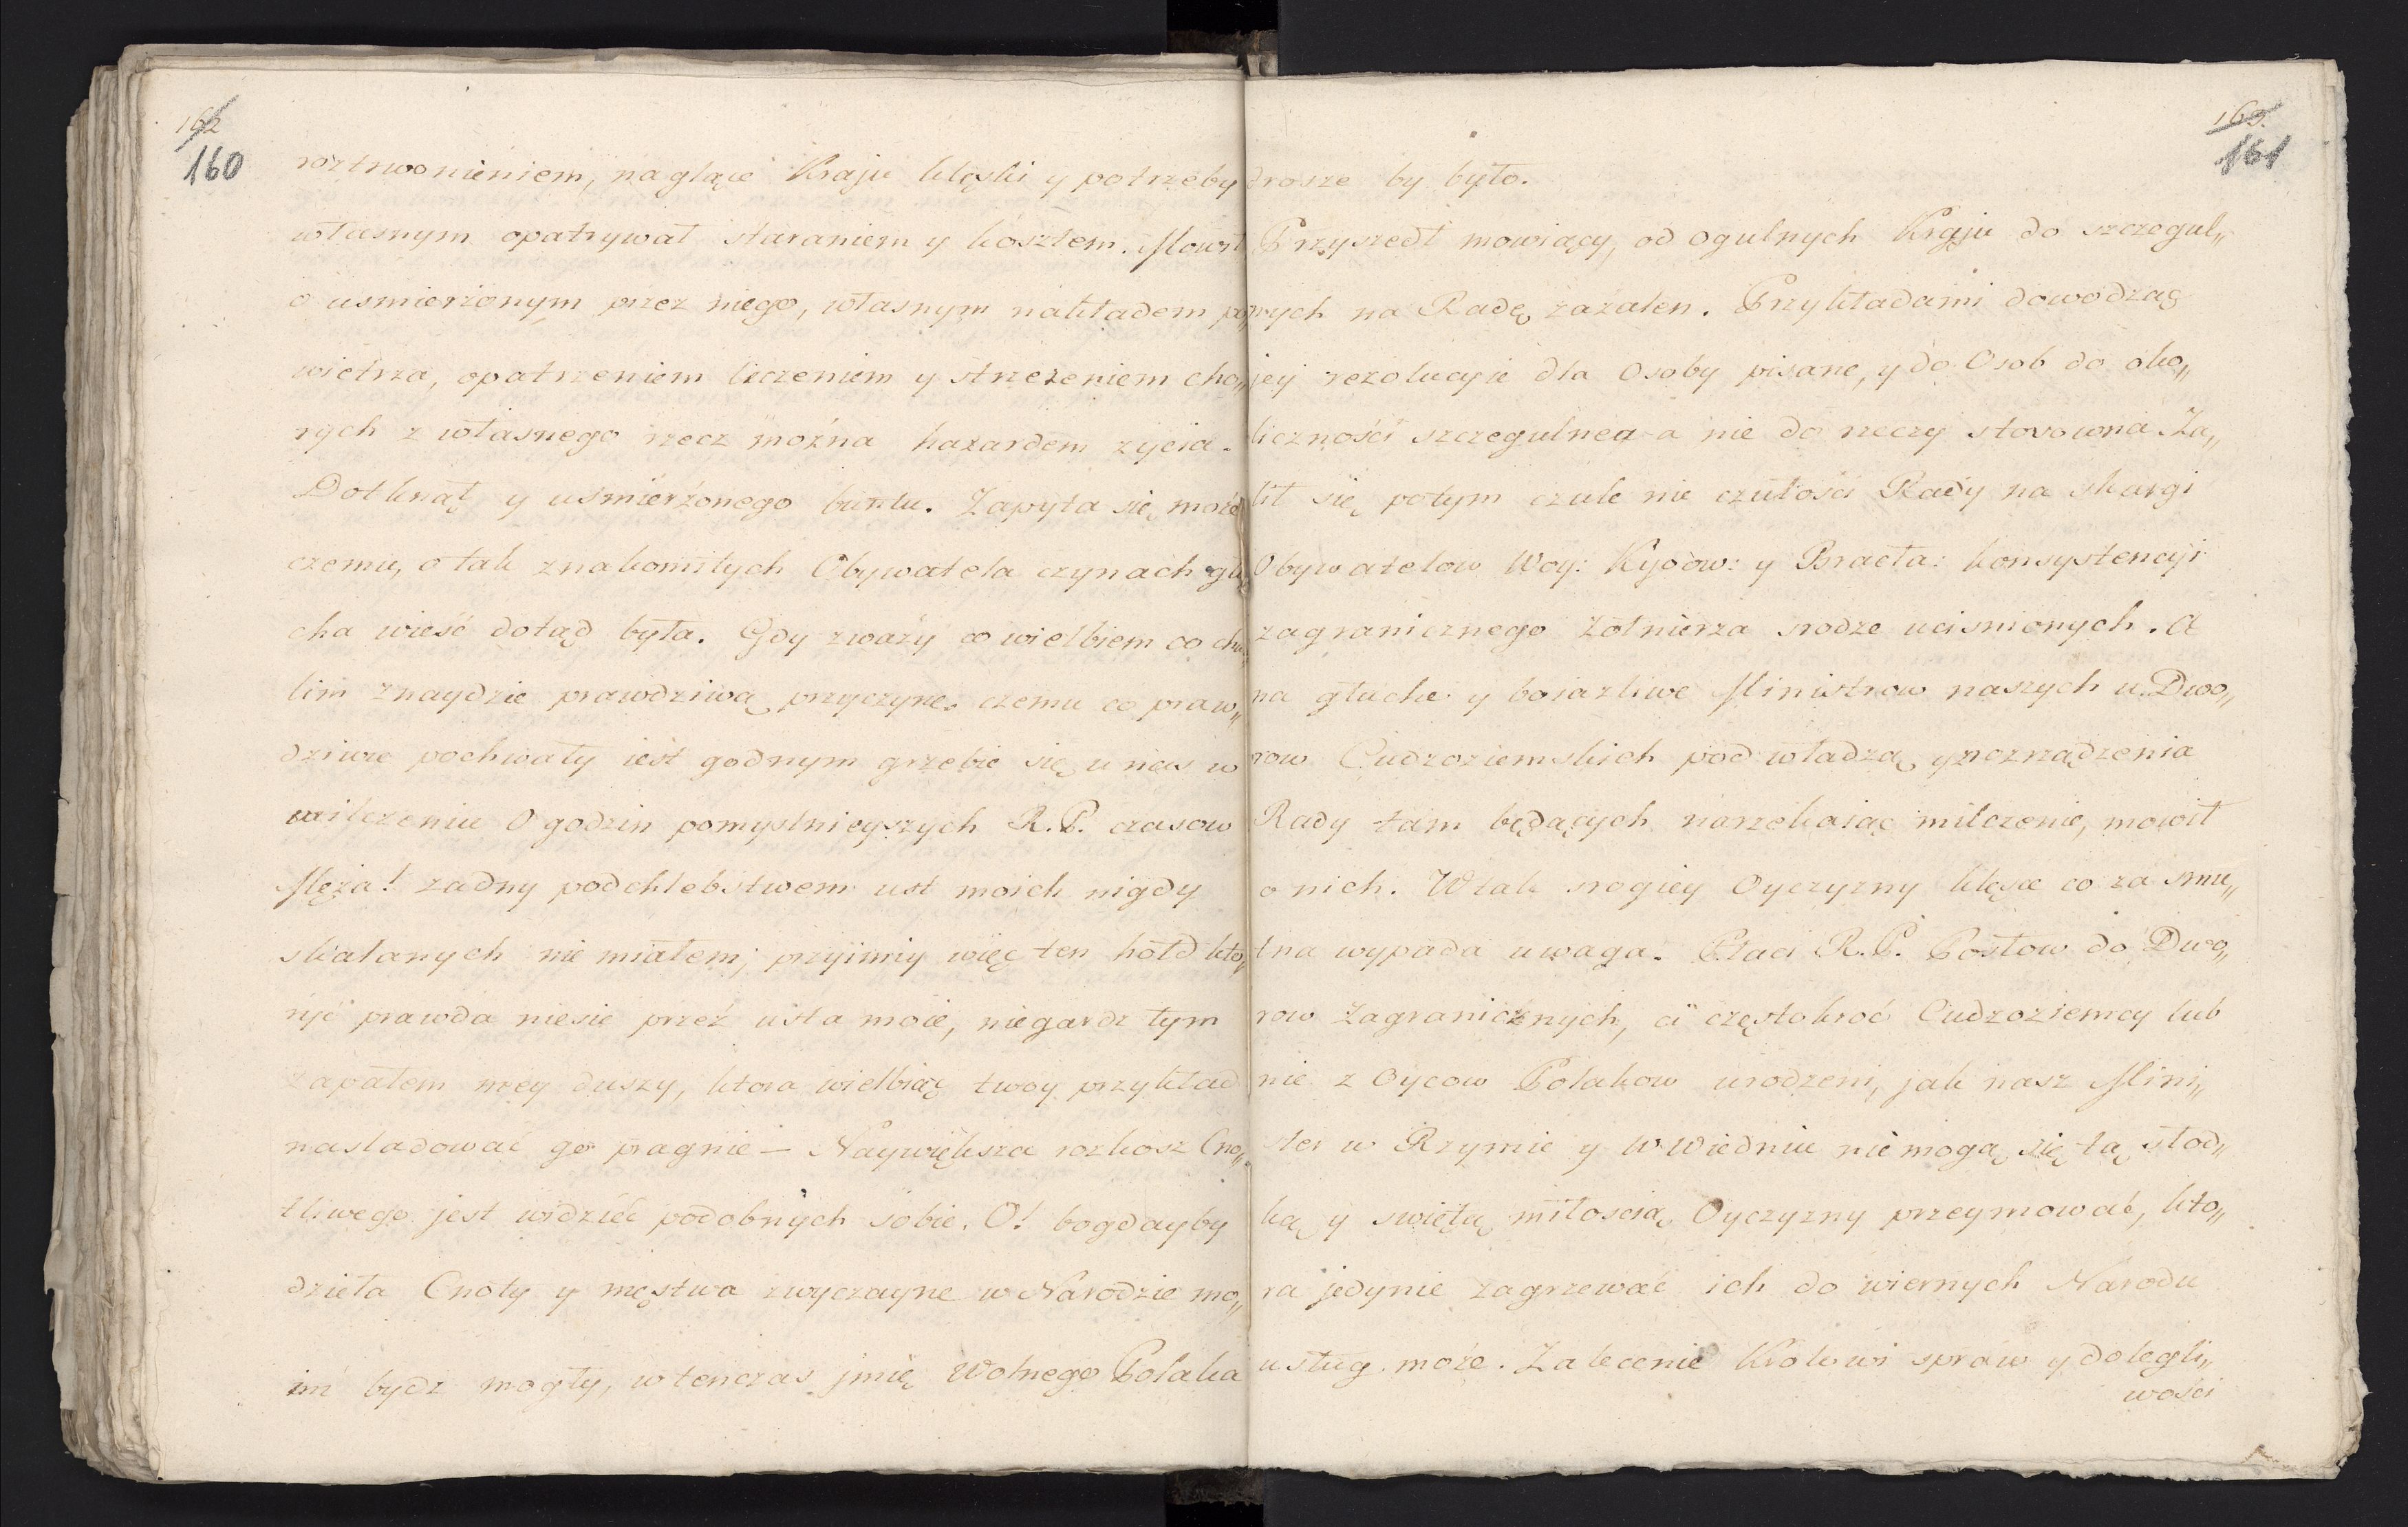 162
160
roztrwonieniem, naglące Kraju klęski y potrzeby
własnym opatrywał staraniem y kosztem. Mowił
o usmierzonym przez niego, własnym nakładem po„
wietrza, opatrzeniem liczeniem y strzeżeniem cho„
rych z własnego rzecz można hazardem zycia.
Dotknął y usmierzonego buntu. Zapyta się może
czemu, o tak znakomitych Obywatela czynach głu„
cha wieść dotąd była. Gdy zwazy co wielbiem co chwa„
lim znaydzie prawdziwą przyczynę. czemu co praw„
dziwie pochwały iest godnym grzebie się u nas w
milczeniu O godzin pomyslnieyszych R.P. czasow
Męża! zadny podchlebstwem ust moich nigdy
skalanych nie miałem; przyimiy więc ten hołd kto„
ryć prawda niesie przez usta moie, niegardz tym
zapałem mey duszy, ktora wielbiąc twoy przykład
nasladować go pragnie — Naywiększa rozkosz Cno„
tliwego jest widzieć podobnych sobie. O! bogdayby
dzieła Cnoty y męstwa zwyczayne w Narodzie mo„
im bydz mogły, wtenczas jmię Wolnego Polaka
163.
161
drosze by było.
Przyszedł mowiący, od ogulnych Kraju do szczegul„
nych na Radę zazalen. Przykładami dowodząc
jey rezolucyie dla Osoby pisane, y do Osob do oko„
liczności szczegulnea a nie do rzeczy stosowna Ża„
lił się potym czule nie czułości Rady na skargi
Obywatelow Woy: Kyiow: y Bracła: konsystencyi
zagranicznego żołnierza srodze ucisnionych. A
na głuche y boiazliwe Ministrow naszych u Dwo„
row Cudzoziemskich pod władzą y rozrządzenia
Rady tam będących narzekaiąc milczenie, mowił
o nich. W tak srogiey Oyczyzny klęsce co za smu„
tna wypada uwaga. Płaci R.P. Posłow do Dwo„
row Zagranicznych, ci częstokroć Cudzoziemcy lub
nie z Oycow Polakow urodzeni, jak nasz Mini„
ster w Rzymie y w Wiedniu nie mogą się tą słod„
ką y swiętą miłoscią Oyczyzny przeymować, kto„
ra jedynie zagrzewać ich do wiernych Narodu
usług może. Zalecenie Krolowi spraw y dolegli„
wości